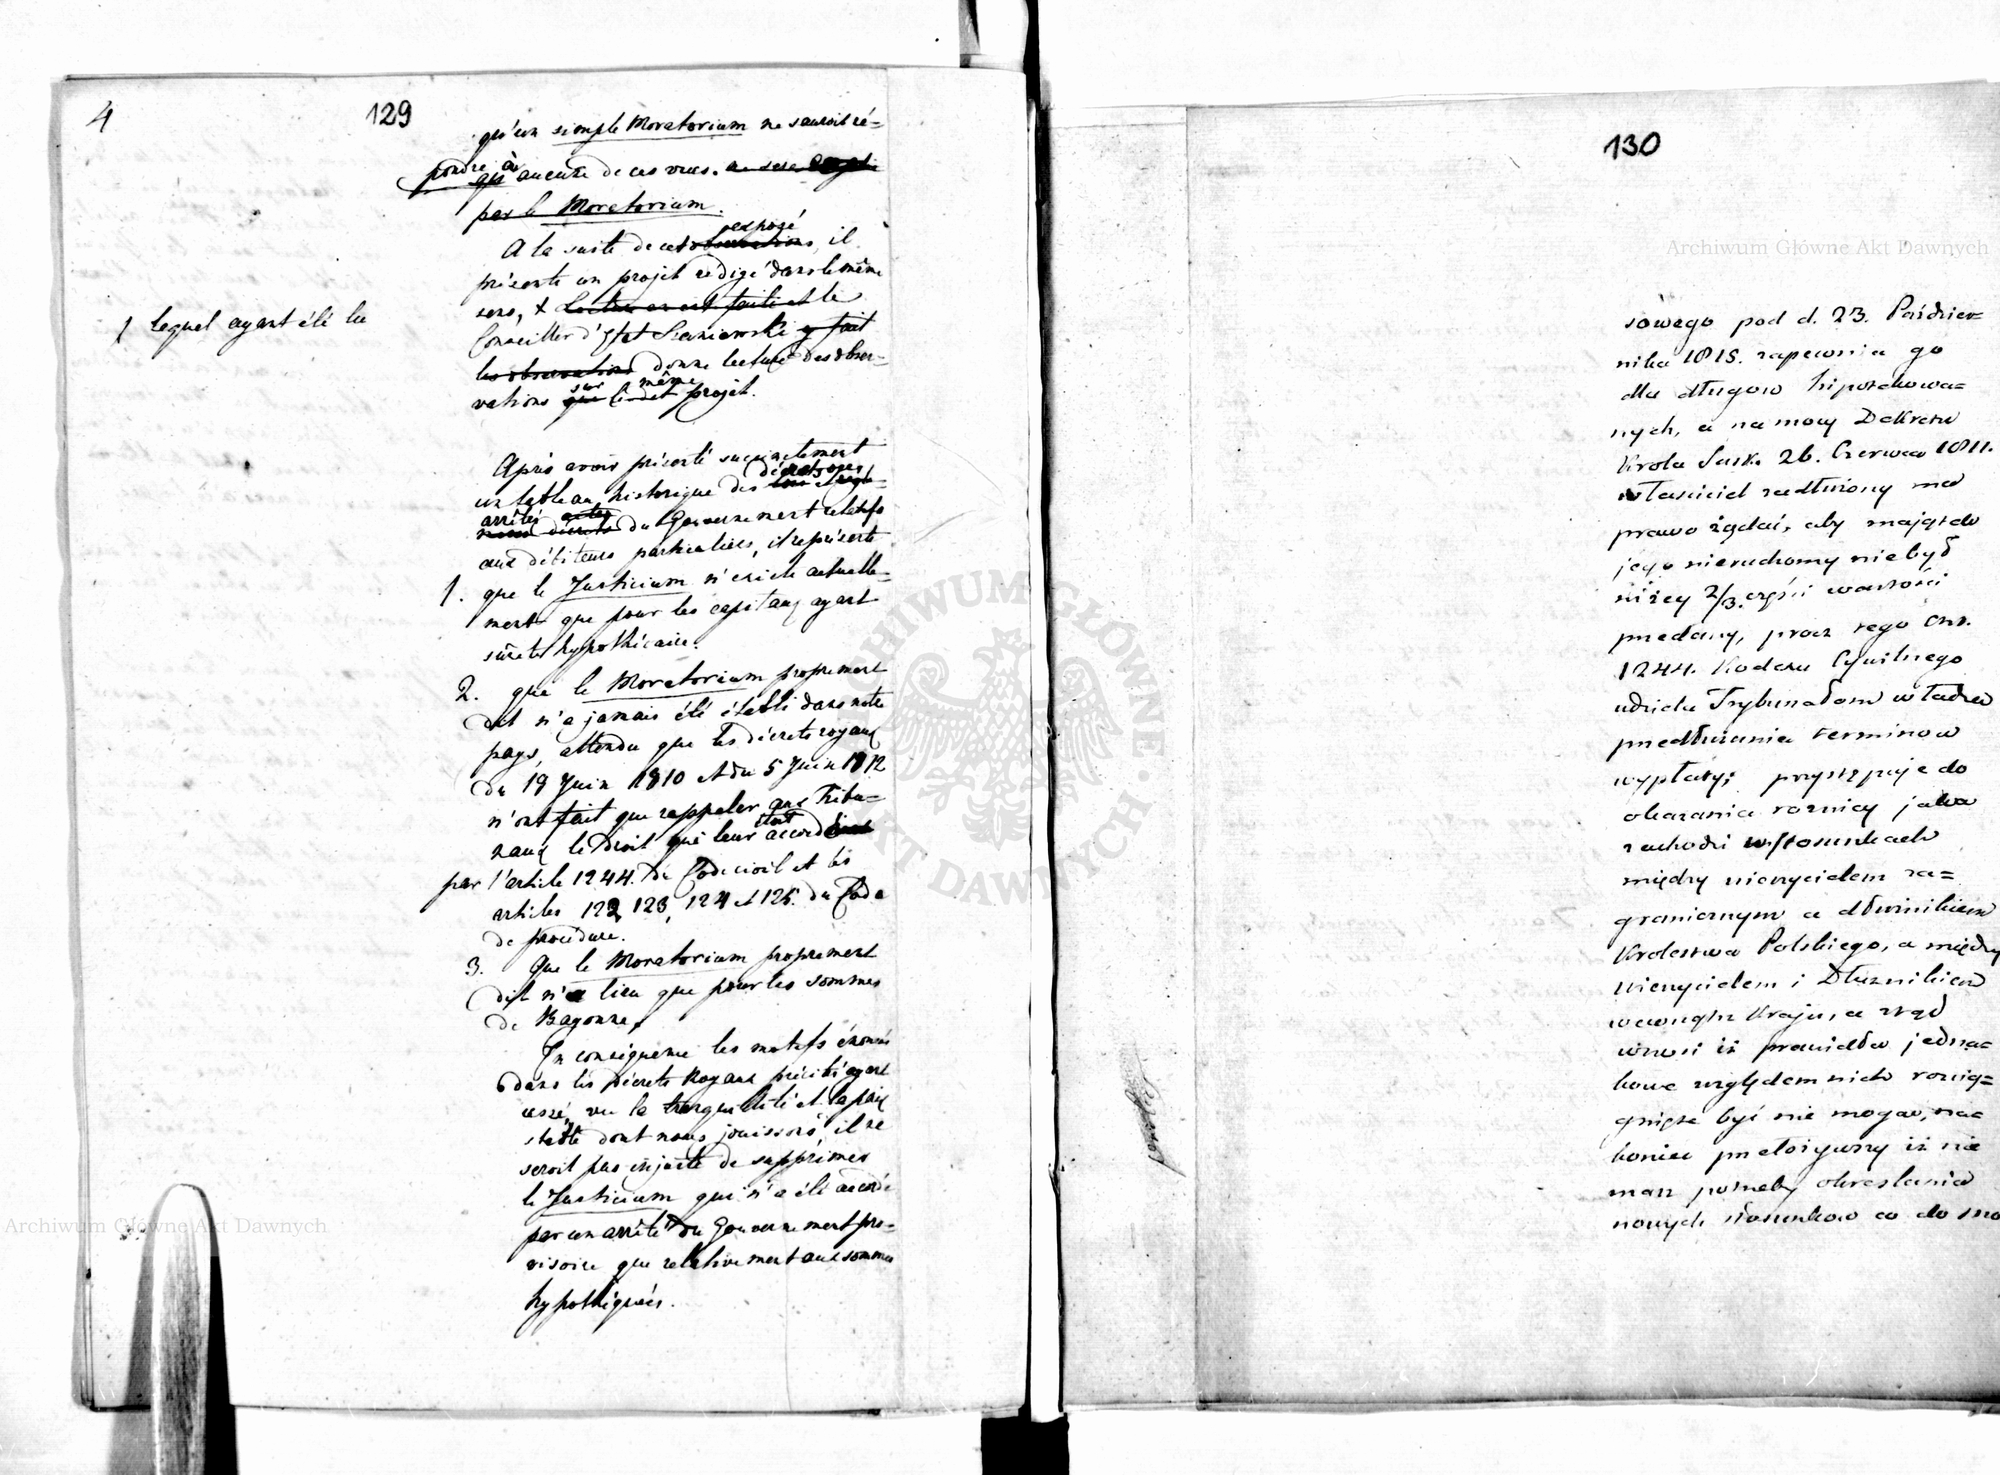 4
129
qu'un simple Moratorium ne sauroit ré=
pondre à
aucune de ces vues.
par le Moratorium.
exposé
A la suite de cet observations, il
présente un projet rédigé dans le même
sens, + Lecture en est faite et le
1 lequel ayant été lu
Conseiller d'Etat Staniewski y fait
les observations donne lecture des obser=
sur même
vations que le dit projet.
Après avoir présenté succinctement
décrets
un tableau historique des lois et
arrêtés actes
décrets du Gouvernement relatifs
aux débiteurs particuliers, il représente
1. que le Justicium n'existe actuelle=
ment que pour les capitaux ayant
sûreté hypothécaire.
2. que le Moratorium proprement
dit n'a jamais été établi dans notre
pays, attendu que les décrets royaux
du 19 Juin 1810 et du 5 Juin 1812
n'ont fait que rappeler aux Tribu=
naux le droit qui leur étoit accordé
par l'article 1244. du Code civil et les
articles 122, 123, 124 et 125. du Code
de procédure.
3. Que le Moratorium proprement
dit n'a lieu que pour les sommes
de Bayonne.
En conséquence les motifs énoncés
dans les décrets Royaux précités ayant
cessé, vu la tranquillité et la paix
stable dont nous jouissons, il ne
seroit pas injuste de supprimer
le Justicium qui n'a été accordé
par un arrêté du Gouvernement pro=
visoire que relativement aux sommes
hypothéquées.
130
sowego pod d. 23. Paździer=
nika 1815. zapewnia go
dla długow hipotekowa=
nych, a na mocy Dekretu
Krola Sask. 26. Czerwca 1811.
właściciel zadłużony ma
prawo żądać, aby majątek
jego nieruchomy niebył
niżey 2/3. części wartości
przedany, procz tego Art.
1244. Kodexu Cywilnego
udziela Trybunałom władzę
przedłużania terminow
wypłaty; przystępuje do
okazania rożnicy jaka
zachodzi w stosunkach
między wierzycielem za=
granicznym a dłużnikiem
Krolestwa Polskiego, a między
wierzycielem i Dłużnikiem
wewnątrz Kraju, a ztąd
wnosi iż prawidła jedna=
kowe względem nich rozcią=
gnięte być nie mogą, na=
koniec przełożywszy iż nie
masz potrzeby określania
nowych stosunkow co do
Archiwum Główne Akt Dawnych
Archiwum Główne Akt Dawnych
ARCHIWUM GŁÓWNE AKT DAWNYCH